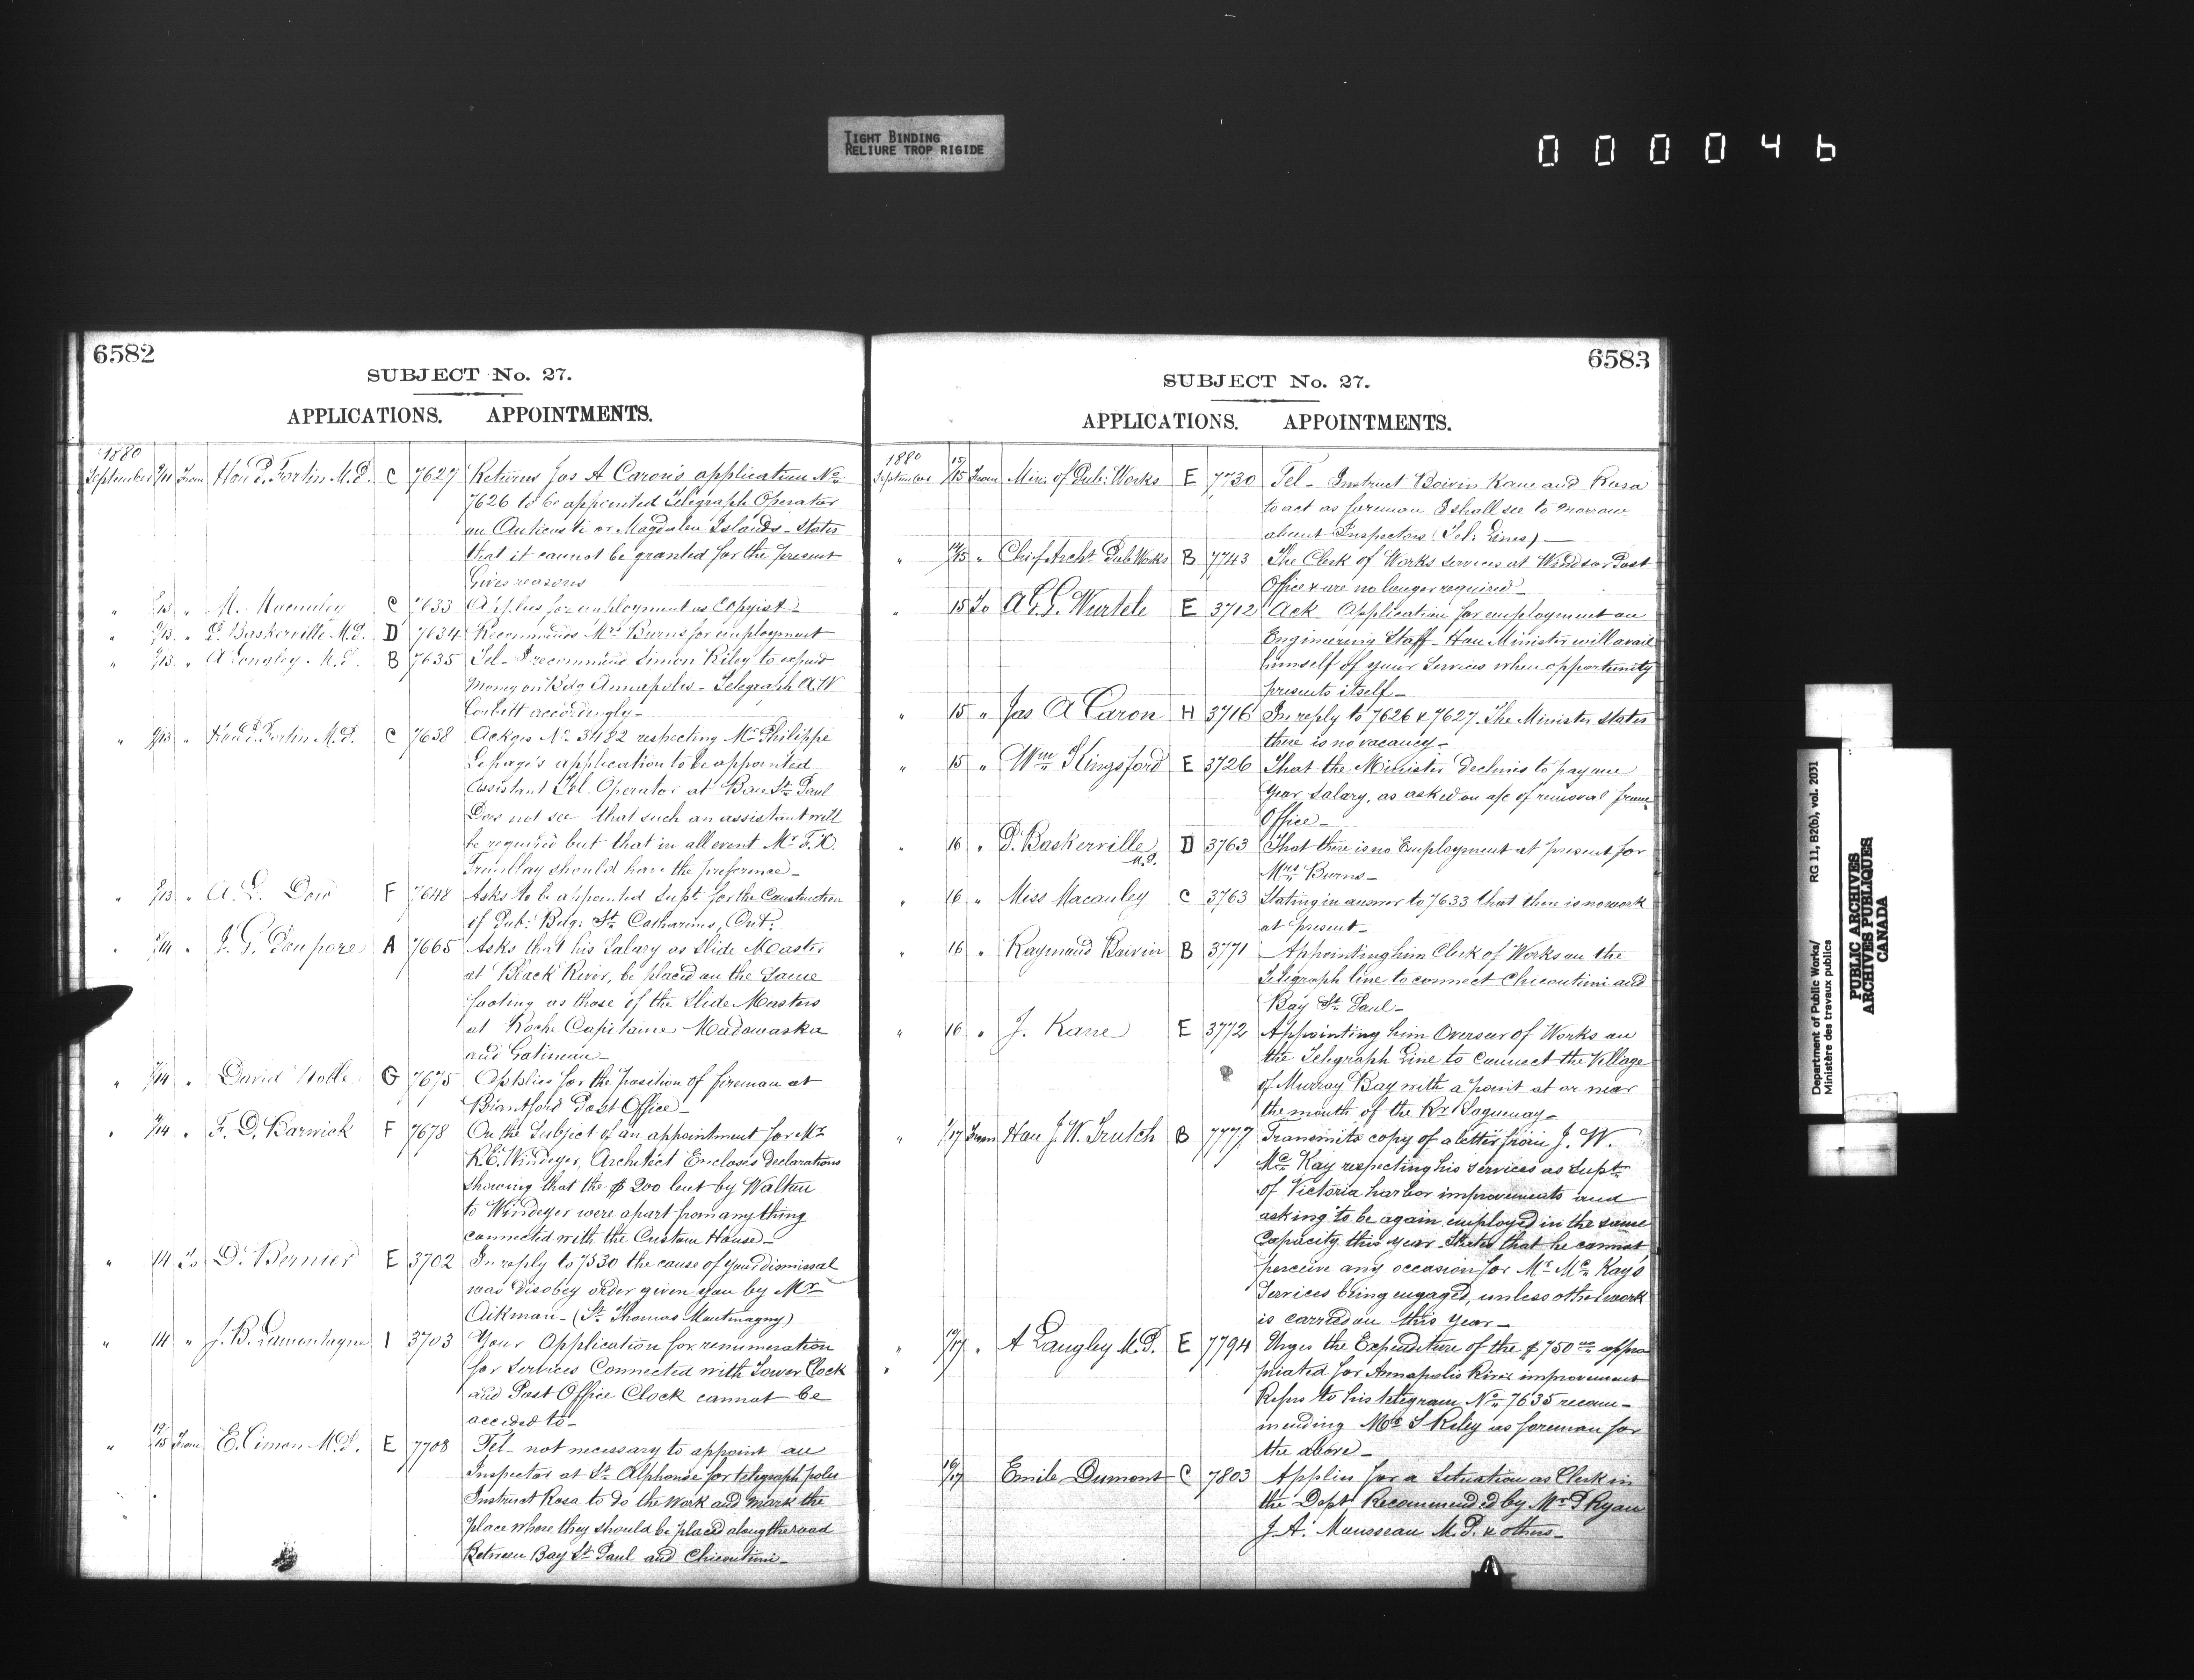 TIGHT BINDING
RELIURE TROP RIGIDE
000046
6582
SUBJECT No. 27.
APPLICATIONS. APPOINTMENTS.
1880
September 9/11 From Hon P. Fortin M.P. C 7627 Returns Jas A Caron's application No
7626 to be appointed Telegraph Operator
on Anticosti or Magdalen Islands - States
that it cannot be granted for the present
Gives reasons
" 13 " M. Macauley C 7633 Applies for employment as Copyist -
" 13 " P. Baskerville M.P. D 7634 Recommends Mrs Burns for employment
" 13 " A Longley M.P. B 7635 Tel - I recommend Simon Riley to expend
money on Bdg Annapolis - Telegraph A.W
Corbitt accordingly -
" 13 " Hon P. Fortin M.P. C 7638 Ackges No 3482 respecting Mr Philippe
Lepage's application to be appointed
Assistant Tel. Operator at Baie St Paul
Does not see that such an assistant will
be required but that in all event Mr F.X.
Tremblay should have the preference -
" 13 " A. L. Dow F 7648 Asks to be appointed Supt for the Construction
of Pub: Bdg: St Catharines, Ont:
" 14 " J. G. Poupore A 7665 Asks that his Salary as Slide Master
at Black River, be placed on the same
footing as those of the Slide Masters
at Roche Capitaine Madawaska
and Gatineau -
" 14 " David Noble G 7675 Applies for the position of fireman at
Brantford Post Office -
" 14 " F. D. Barwick F 7678 On the Subject of an appointment for Mr
R.C. Windeyer, Architect Encloses Declarations
showing that the $200 lent by Walton
to Windeyer were apart from anything
connected with the Custom House -
" 14 To D. Bernier E 3702 In reply to 7530 the cause of your dismissal
was disobey order given you by Mr
Aikman - (St Thomas Montmagny)
" 14 " J. B. Lamontagne I 3703 Your Application for renumeration
for services Connected with Tower Clock
and Post Office Clock cannot be
acceded to -
" 14/15 From E. Cimon M.P. E 7708 Tel - not necessary to appoint an
Inspector at St Alphonse for telegraph poles
Instruct Rosa to do the work and mark the
place where they should be placed along the road
Between Bay St Paul and Chicoutimi -
6583
SUBJECT No. 27.
APPLICATIONS. APPOINTMENTS.
1880
September 15/15 From Min: of Pub: Works E 7730 Tel - Instruct Boivin Kane and Rosa
to act as foreman I shall see to morrow
about Inspectors (Tel: Lines) -
" 14/15 " Chief Archt Pub Works B 7743 The Clerk of Works services at Windsor Post
Office & are no longer required -
" 15 To A.G.G. Wurtele E 3712 Ack - Application for employment on
Engineering Staff - Hon Minister will avail
himself of your Services when opportunity
presents itself -
" 15 " Jas A Caron H 3716 In reply to 7626 & 7627. The Minister states
there is no vacancy -
" 15 " Wm Kingsford E 3726 That the Minister declines to pay one
Year Salary, as asked on a/c of removal from
Office -
" 16 " P. Baskerville M.P. D 3763 That there is no Employment at present for
Mrs Burns -
" 16 " Miss Macauley C 3763 Stating in answer to 7633 that there is no work
at present -
" 16 " Raymond Boivin B 3771 Appointing him Clerk of Works on the
Telegraph line to connect Chicoutimi and
Bay St Paul -
" 16 " J. Kane E 3772 Appointing him Overseer of Works on
the Telegraph Line to Connect the Village
of Murray Bay with a point at or near
the mouth of the Rr Saguenay -
" /17 From Hon J. W. Trutch B 7777 Transmits copy of a letter from J. W.
Mc Kay respecting his services as Supt
of Victoria harbor improvements and
asking to be again employed in the same
Capacity this year - States that he cannot
perceive any occasion for Mr Mc Kay's
Services being engaged, unless other work
is carried on this year -
" /17 " A Longley M.P. E 7794 Urges the Expenditure of the $750 00 appro
priated for Annapolis River improvement
Refers to his telegram No 7635 recom-
mending Mr S Riley as foreman for
the above -
16/17 Emile Dumont C 7803 Applies for a Situation as Clerk in
the Dept Recommended by Mr P Ryan
J. A. Mousseau M.P. & others -
Department of Public Works/ RG 11, B2(b), vol. 2031
Ministère des travaux publics
PUBLIC ARCHIVES
ARCHIVES PUBLIQUES
CANADA